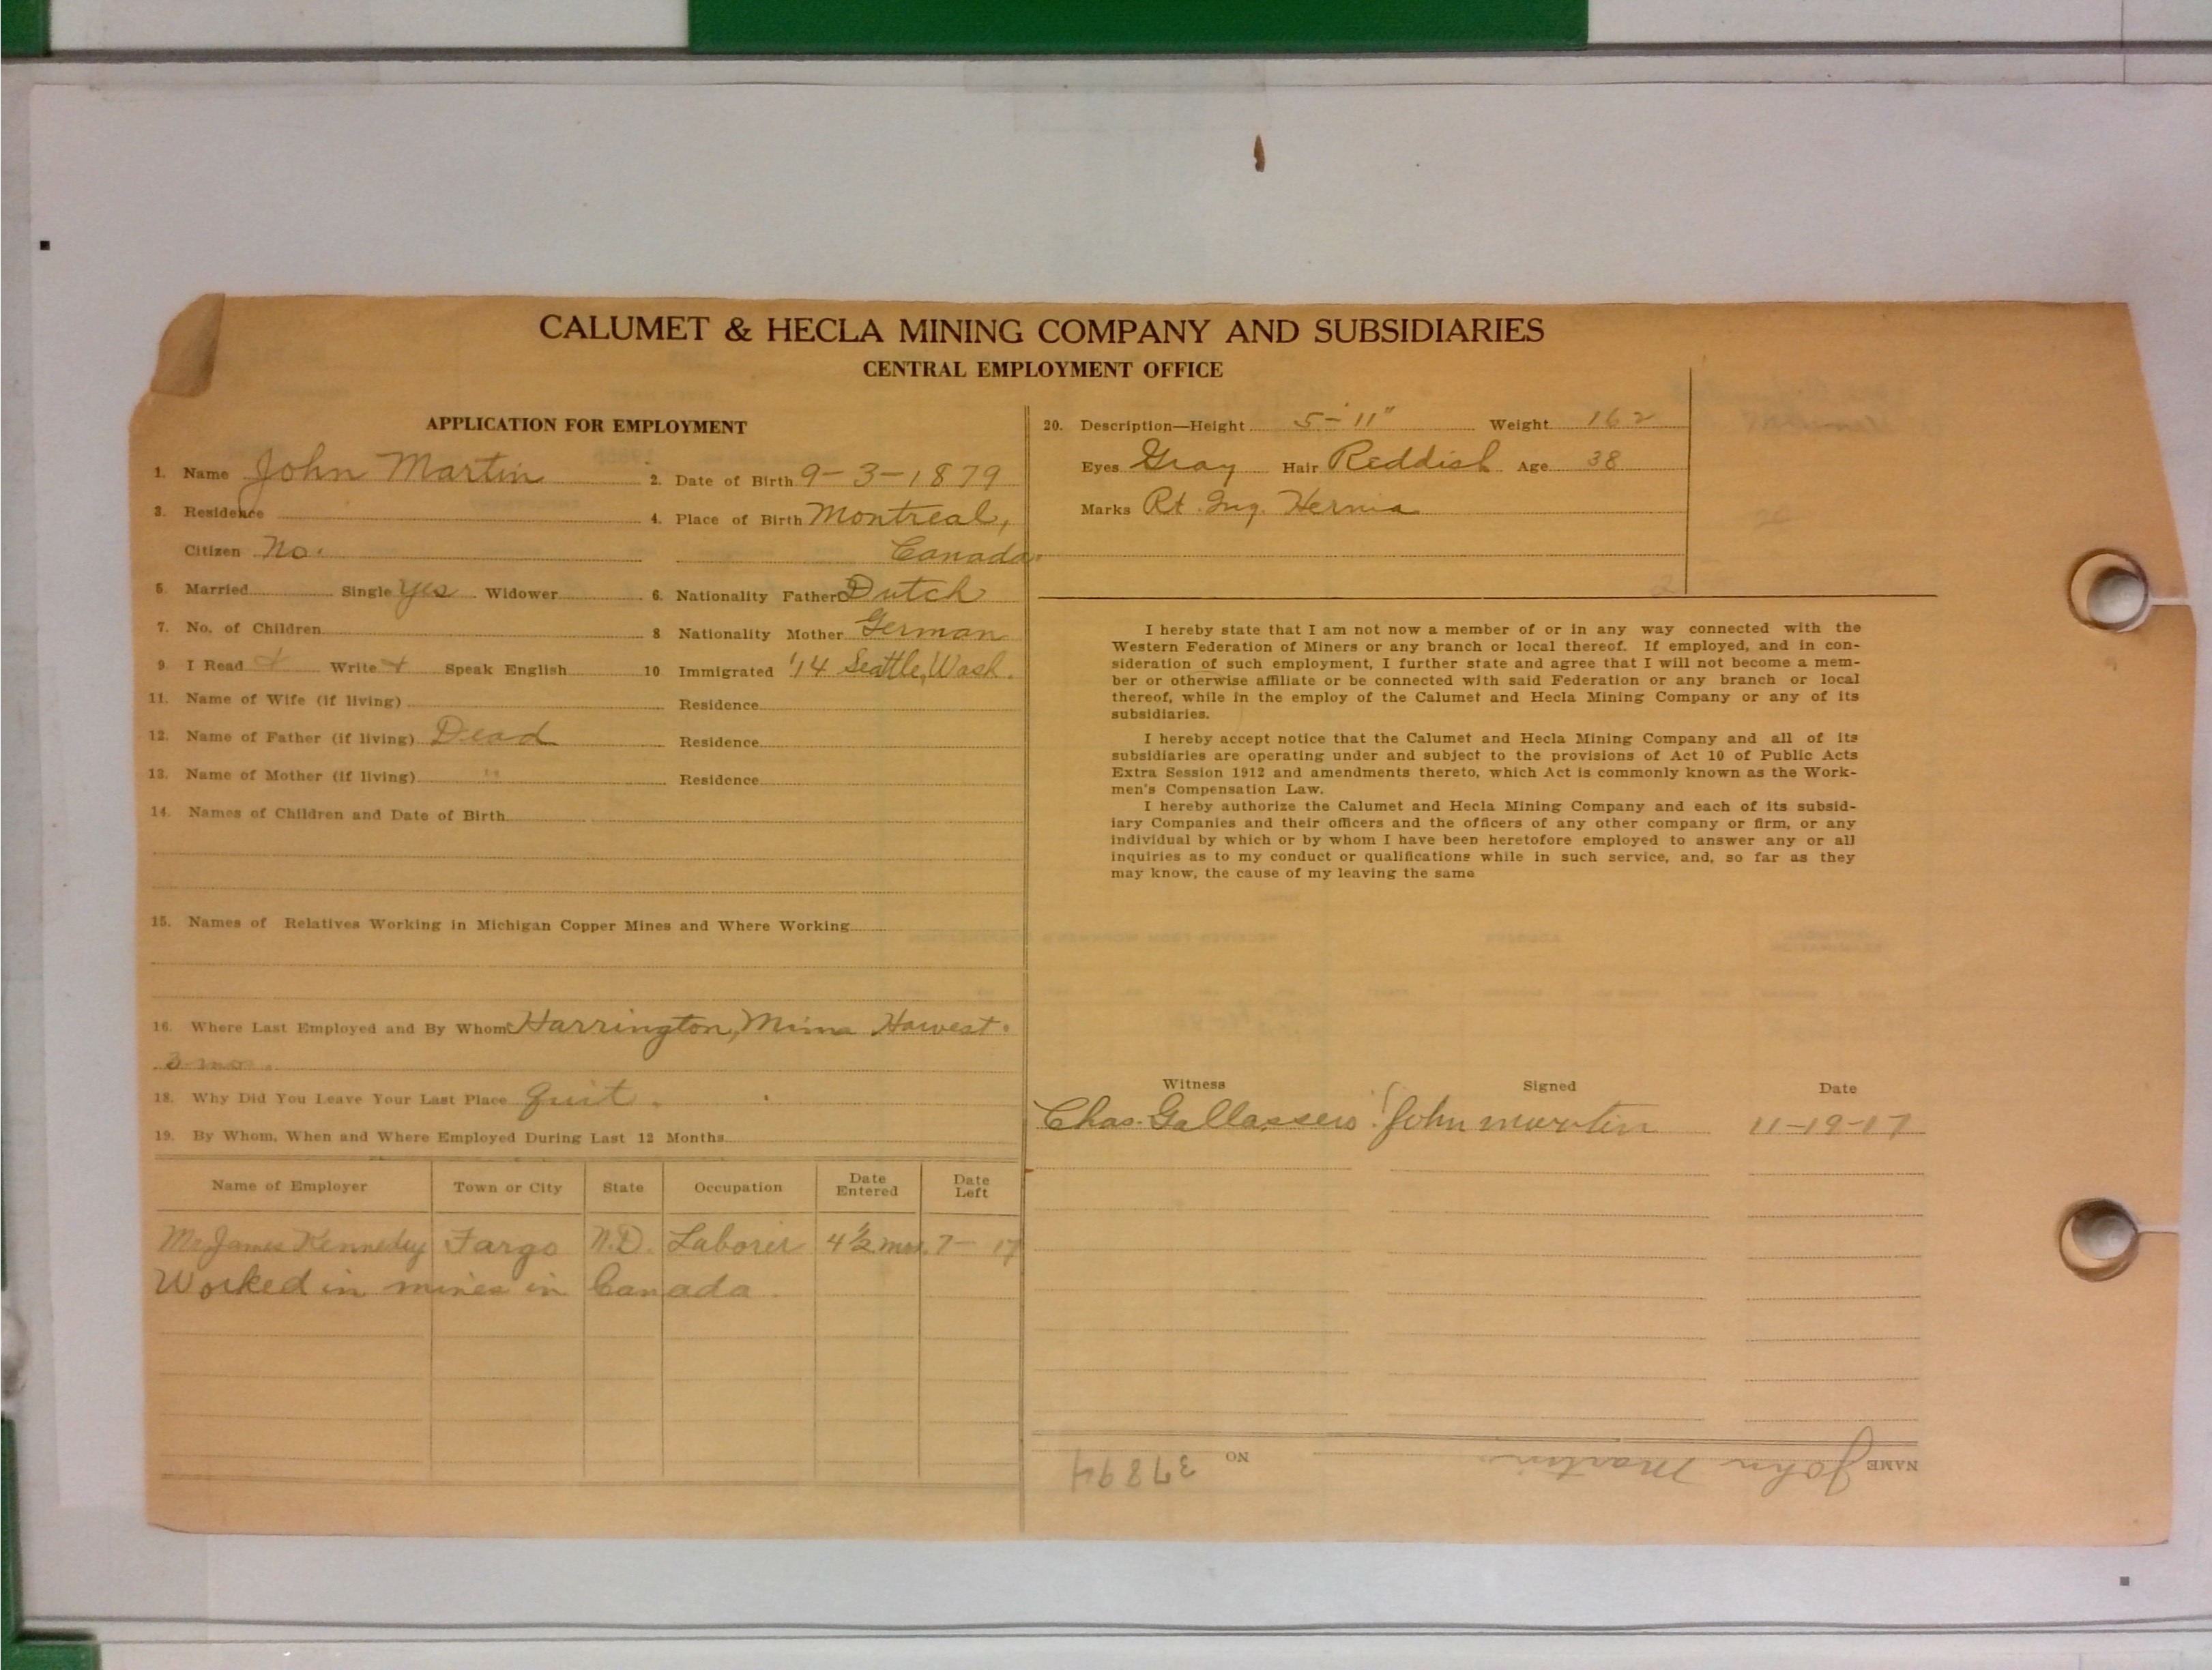 CALUMET & HECLA MINING COMPANY AND SUBSIDIARIES
CENTRAL EMPLOYMENT OFFICE
APPLICATION FOR EMPLOYMENT
1. Name John Martin 2. Date of Birth 9-3-1879
3. Residence 4. Place of Birth Montreal,
Citizen No. Canada.
5. Married Single Yes Widower 6. Nationality Father Dutch
7. No. of Children 8 Nationality Mother German
9. I Read + Write + Speak English 10 Immigrated '14 Seattle, Wash.
11. Name of Wife (if living) Residence
12. Name of Father (if living) Dead Residence
13. Name of Mother (if living) " Residence
14. Names of Children and Date of Birth
15. Names of Relatives Working in Michigan Copper Mines and Where Working
16. Where Last Employed and By Whom Harrington, Harvest.
3 mos.
18. Why Did You Leave Your Last Place quit.
19. By Whom, When and Where Employed During Last 12 Months
Name of Employer Town or City State Occupation Date Entered Date Left
James Kennedy Fargo N.D. Laborer 4 1/2 mos. 7- 17
Worked in mines in Canada.
20. Description—Height 5-11" Weight 162
Eyes Gray Hair Reddish Age 38
Marks Rt. Ing. Hernia
I hereby state that I am not now a member of or in any way connected with the
Western Federation of Miners or any branch or local thereof. If employed, and in con-
sideration of such employment, I further state and agree that I will not become a mem-
ber or otherwise affiliate or be connected with said Federation or any branch or local
thereof, while in the employ of the Calumet and Hecla Mining Company or any of its
subsidiaries.
I hereby accept notice that the Calumet and Hecla Mining Company and all of its
subsidiaries are operating under and subject to the provisions of Act 10 of Public Acts
Extra Session 1912 and amendments thereto, which Act is commonly known as the Work-
men's Compensation Law.
I hereby authorize the Calumet and Hecla Mining Company and each of its subsid-
iary Companies and their officers and the officers of any other company or firm, or any
individual by which or by whom I have been heretofore employed to answer any or all
inquiries as to my conduct or qualifications while in such service, and, so far as they
may know, the cause of my leaving the same
Witness Signed Date
Chas. John Martin 11-19-17
NAME John Martin NO 37894